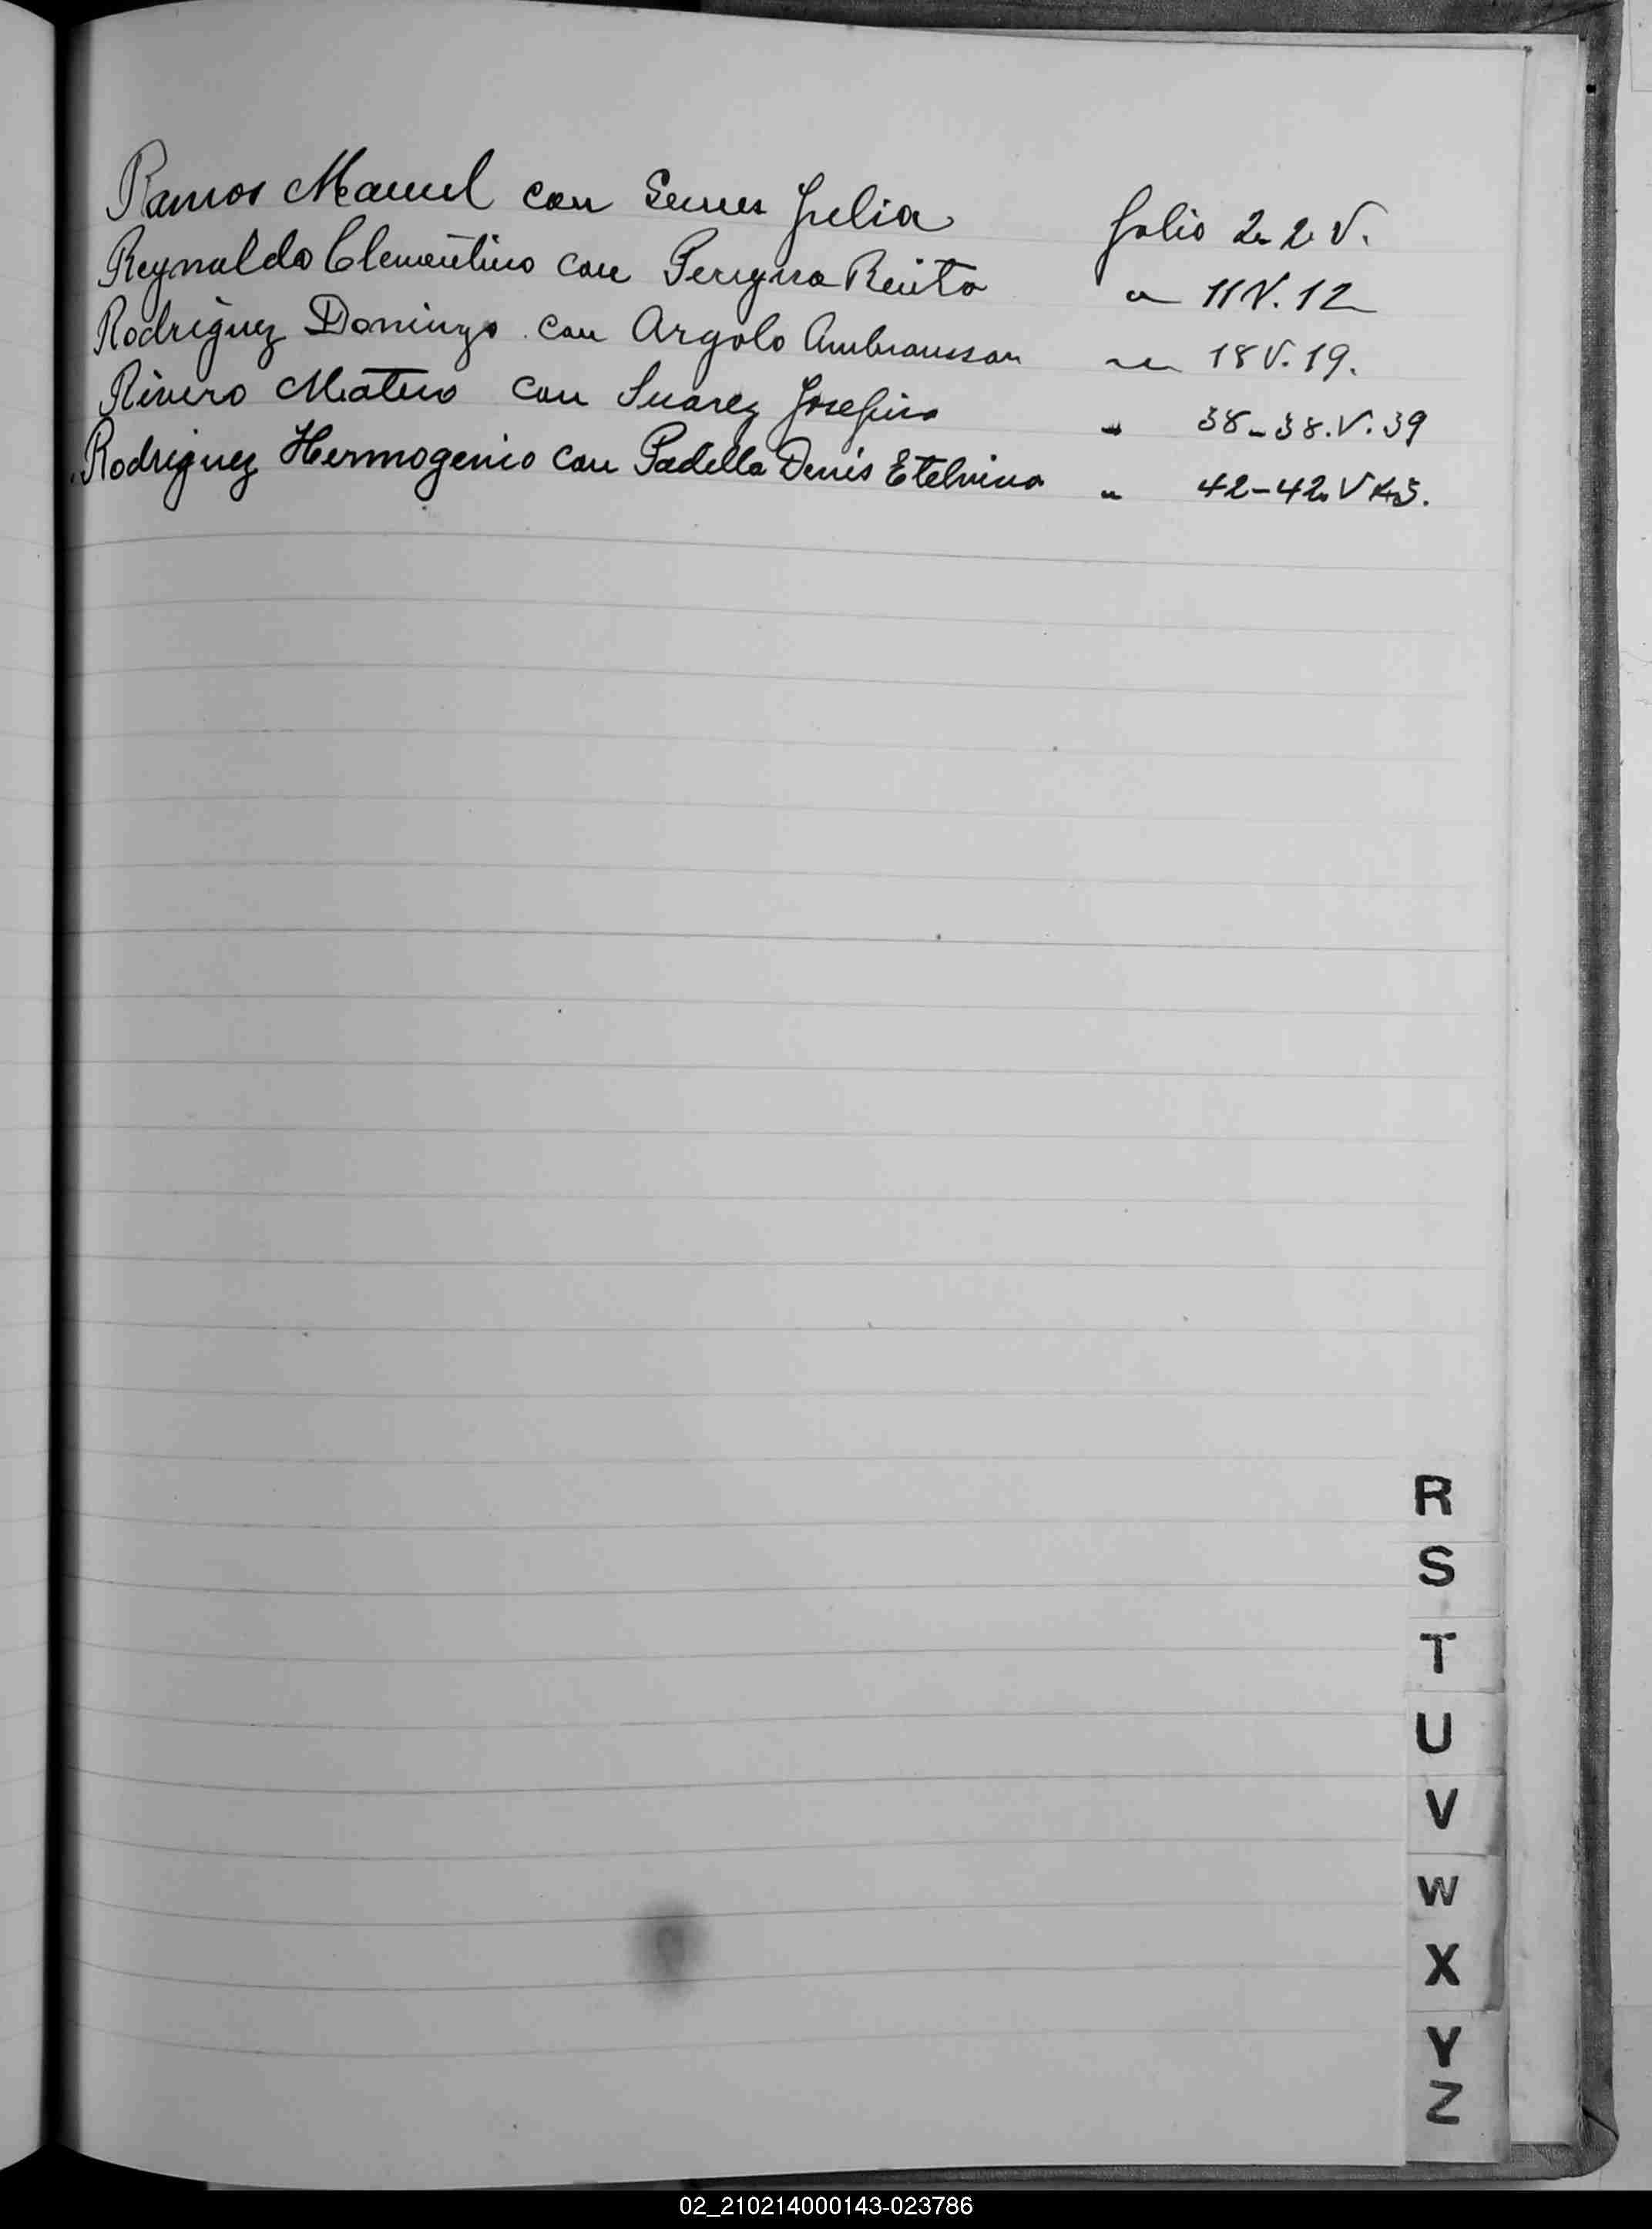 Ramos Manuel con Julia folio 2. 2. V.
Reynaldo Clementino con Pereyra Benita " 11 V. 12
Rodriguez Domingo con Argolo " 18 V. 19.
Rivero Mateo con Suarez Josefina " 38-38.V.39
Rodriguez Hermogenio con Padella Denis Etelvina " 42-42 V 43.
R
S
T
U
V
W
X
Y
Z
02_210214000143-023786